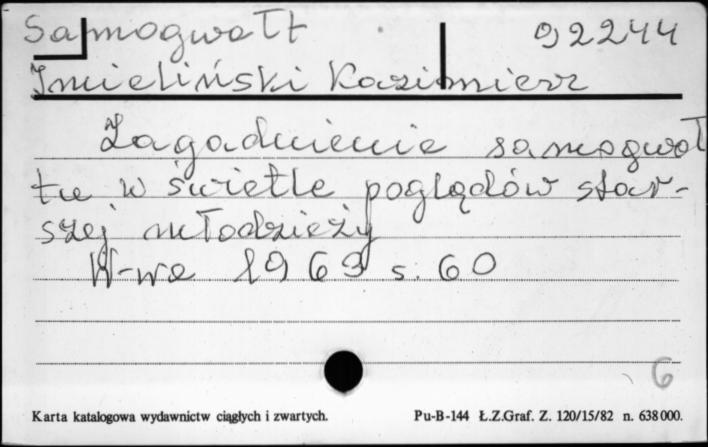 Samogwałt 92244
Imieliński Kazimierz
Zagadnienie samogwał
tu w świetle poglądów star-
szej młodzieży
W-wa 1963 s. 60
6
Karta katalogowa wydawnictw ciągłych i zwartych. Pu-B-144 Ł.Z.Graf. Z. 120/15/82 n. 638000.